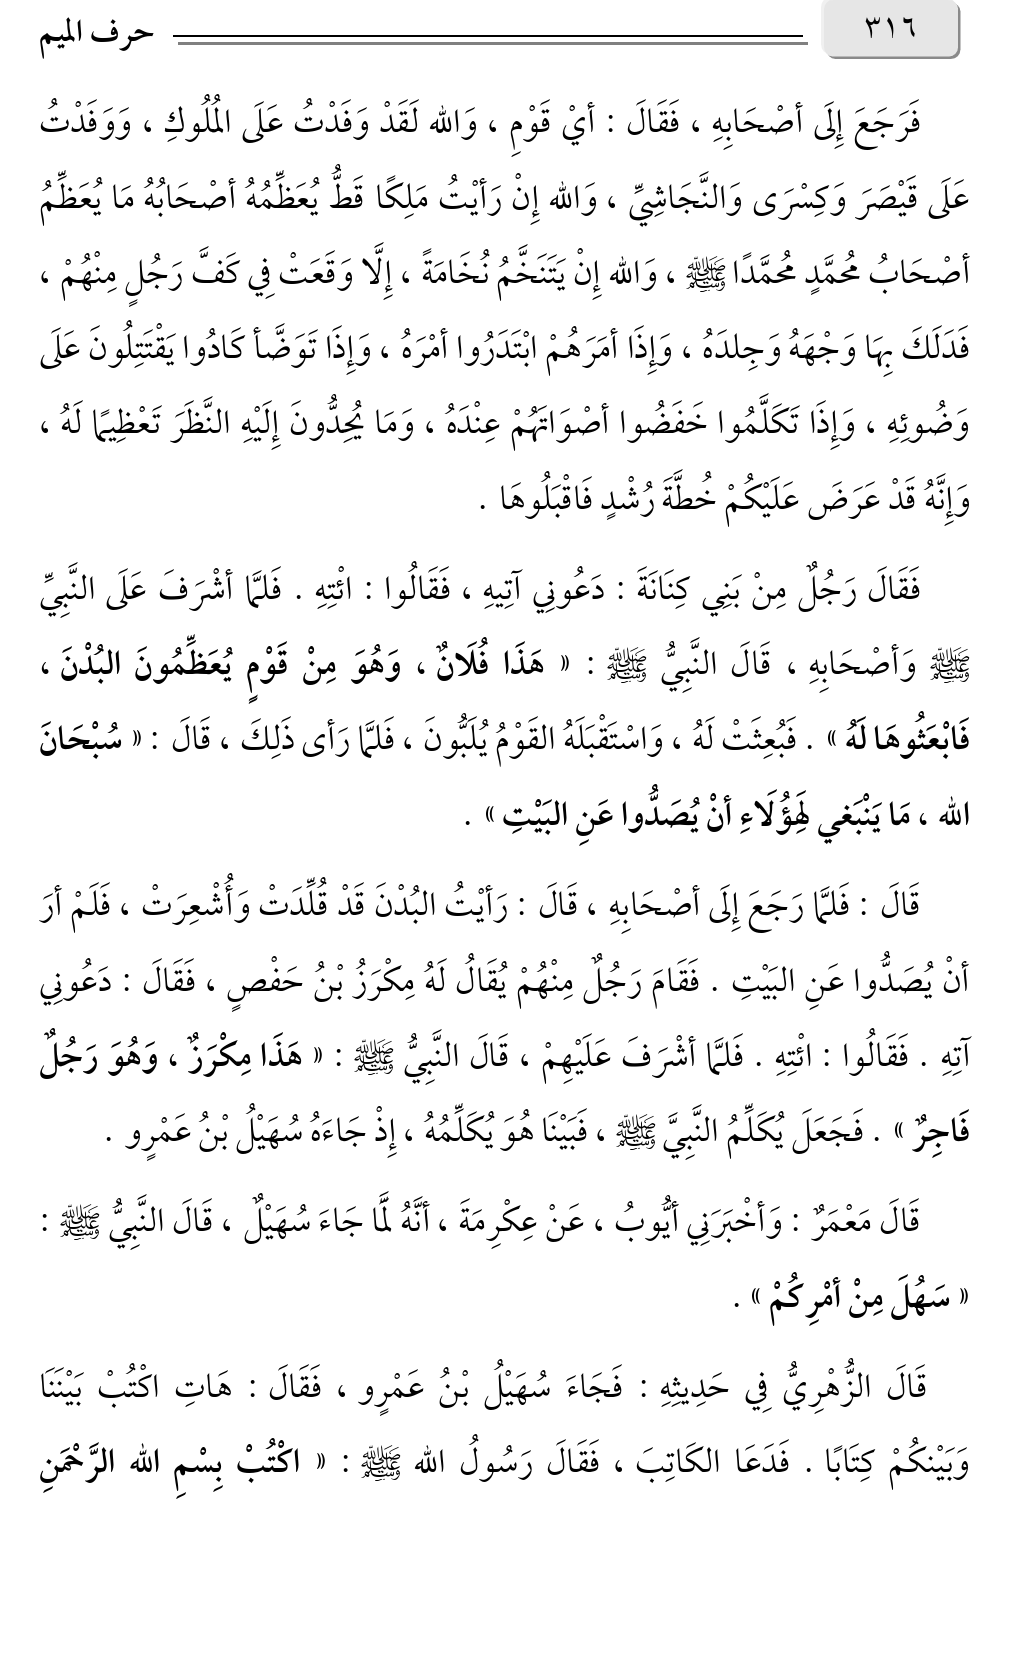 ٣١٦ حرف الميم
فَرَجَعَ إِلَى أصْحَابِهِ ، فَقَالَ : أيْ قَوْمِ ، وَالله لَقَدْ وَفَدْتُ عَلَى المُلُوكِ ، وَوَفَدْتُ
عَلَى قَيْصَرَ وَكِسْرَى وَالنَّجَاشِيِّ ، وَالله إِنْ رَأيْتُ مَلِكًا قَطُّ يُعَظِّمُهُ أصْحَابُهُ مَا يُعَظِّمُ
أصْحَابُ مُحَمَّدٍ مُحَمَّدًا ﷺ ، وَالله إِنْ يَتَنَخَّمُ نُخَامَةً ، إِلَّا وَقَعَتْ فِي كَفَّ رَجُلٍ مِنْهُمْ ،
فَدَلَكَ بِهَا وَجْهَهُ وَجِلدَهُ ، وَإِذَا أمَرَهُمْ ابْتَدَرُوا أمْرَهُ ، وَإِذَا تَوَضَّأ كَادُوا يَقْتَتِلُونَ عَلَى
وَضُوئِهِ ، وَإِذَا تَكَلَّمُوا خَفَضُوا أصْوَاتَهُمْ عِنْدَهُ ، وَمَا يُحِدُّونَ إِلَيْهِ النَّظَرَ تَعْظِيمًا لَهُ ،
وَإِنَّهُ قَدْ عَرَضَ عَلَيْكُمْ خُطَّةَ رُشْدٍ فَاقْبَلُوهَا .
فَقَالَ رَجُلٌ مِنْ بَنِي كِنَانَةَ : دَعُونِي آتِيهِ ، فَقَالُوا : ائْتِهِ . فَلمَّا أشْرَفَ عَلَى النَّبِيِّ
ﷺ وَأصْحَابِهِ ، قَالَ النَّبِيُّ ﷺ : « هَذَا فُلَانٌ ، وَهُوَ مِنْ قَوْمٍ يُعَظِّمُونَ البُدْنَ ،
فَابْعَثُوهَا لَهُ » . فَبُعِثَتْ لَهُ ، وَاسْتَقْبَلَهُ القَوْمُ يُلَبُّونَ ، فَلمَّا رَأى ذَلِكَ ، قَالَ : « سُبْحَانَ
الله ، مَا يَنْبَغي لَهَؤُلَاءِ أنْ يُصَدُّوا عَنِ البَيْتِ » .
قَالَ : فَلمَّا رَجَعَ إِلَى أصْحَابِهِ ، قَالَ : رَأيْتُ البُدْنَ قَدْ قُلِّدَتْ وَأُشْعِرَتْ ، فَلَمْ أرَ
أنْ يُصَدُّوا عَنِ البَيْتِ . فَقَامَ رَجُلٌ مِنْهُمْ يُقَالُ لَهُ مِكْرَزُ بْنُ حَفْصٍ ، فَقَالَ : دَعُونِي
آتِهِ . فَقَالُوا : ائْتِهِ . فَلمَّا أشْرَفَ عَلَيْهِمْ ، قَالَ النَّبِيُّ ﷺ : « هَذَا مِكْرَزٌ ، وَهُوَ رَجُلٌ
فَاجِرٌ » . فَجَعَلَ يُكَلِّمُ النَّبِيَّ ﷺ ، فَبَيْنَا هُوَ يُكَلِّمُهُ ، إِذْ جَاءَهُ سُهَيْلُ بْنُ عَمْرٍو .
قَالَ مَعْمَرٌ : وَأخْبَرَنِي أيُّوبُ ، عَنْ عِكْرِمَةَ ، أنَّهُ لمَّا جَاءَ سُهَيْلٌ ، قَالَ النَّبِيُّ ﷺ :
« سَهُلَ مِنْ أمْرِكُمْ » .
قَالَ الزُّهْرِيُّ فِي حَدِيثِهِ : فَجَاءَ سُهَيْلُ بْنُ عَمْرٍو ، فَقَالَ : هَاتِ اكْتُبْ بَيْنَنَا
وَبَيْنكُمْ كِتَابًا . فَدَعَا الكَاتِبَ ، فَقَالَ رَسُولُ الله ﷺ : « اكْتُبْ بِسْمِ الله الرَّحْمَنِ